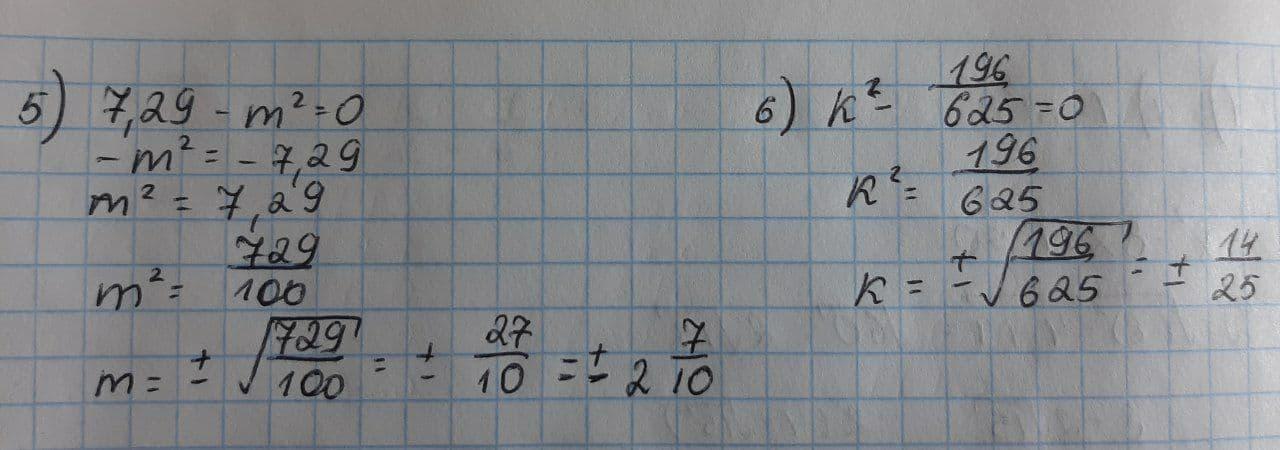 5) 7,29 - m² = 0
- m² = - 7,29
m² = 7,29
m² = 729/100
m = ± √(729/100) = ± 27/10 = ± 2 7/10
6) k² - 196/625 = 0
k² = 196/625
k = ± √(196/625) = ± 14/25